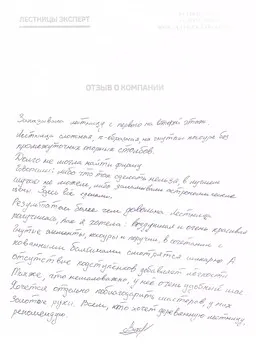 ЛЕСТНИЦЫ ЭКСПЕРТ
ОТЗЫВ О КОМПАНИИ
Заказывали лестницу с первого на второй этаж.
Лестница сложная, п-образная на гнутом косоуре без
промежуточных опорных столбов.
Долго не могли найти фирму.
Говорили: либо что так сделать нельзя, в лучшем
случае не можем, либо заламывали астрономические
цены. Здесь всё
Результатом более чем довольна. Лестница
получилась, как я хотела: воздушная и очень красивая
Гнутые элементы, косоуры и поручни, в сочетании с
коваными балясинами смотрятся шикарно. А
отсутствие подступенков добавляет лёгкости
что немаловажно, у нее очень удобный шаг
Хочется отдельно поблагодарить мастеров, у них
Золотые руки. Всем, кто хочет деревянную лестницу,
рекомендую.